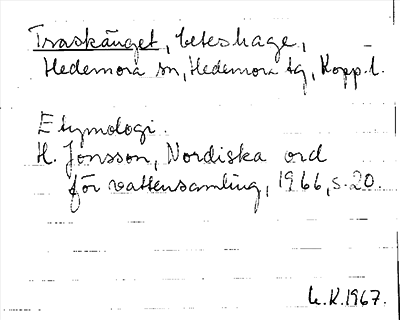 Traskänget, beteshage,
Hedemora sn, Hedemora tg, Kopp. l.
Etymologi.
H. Jonsson, Nordiska ord
för vattensamling, 1966, s. 20.
K.1967.